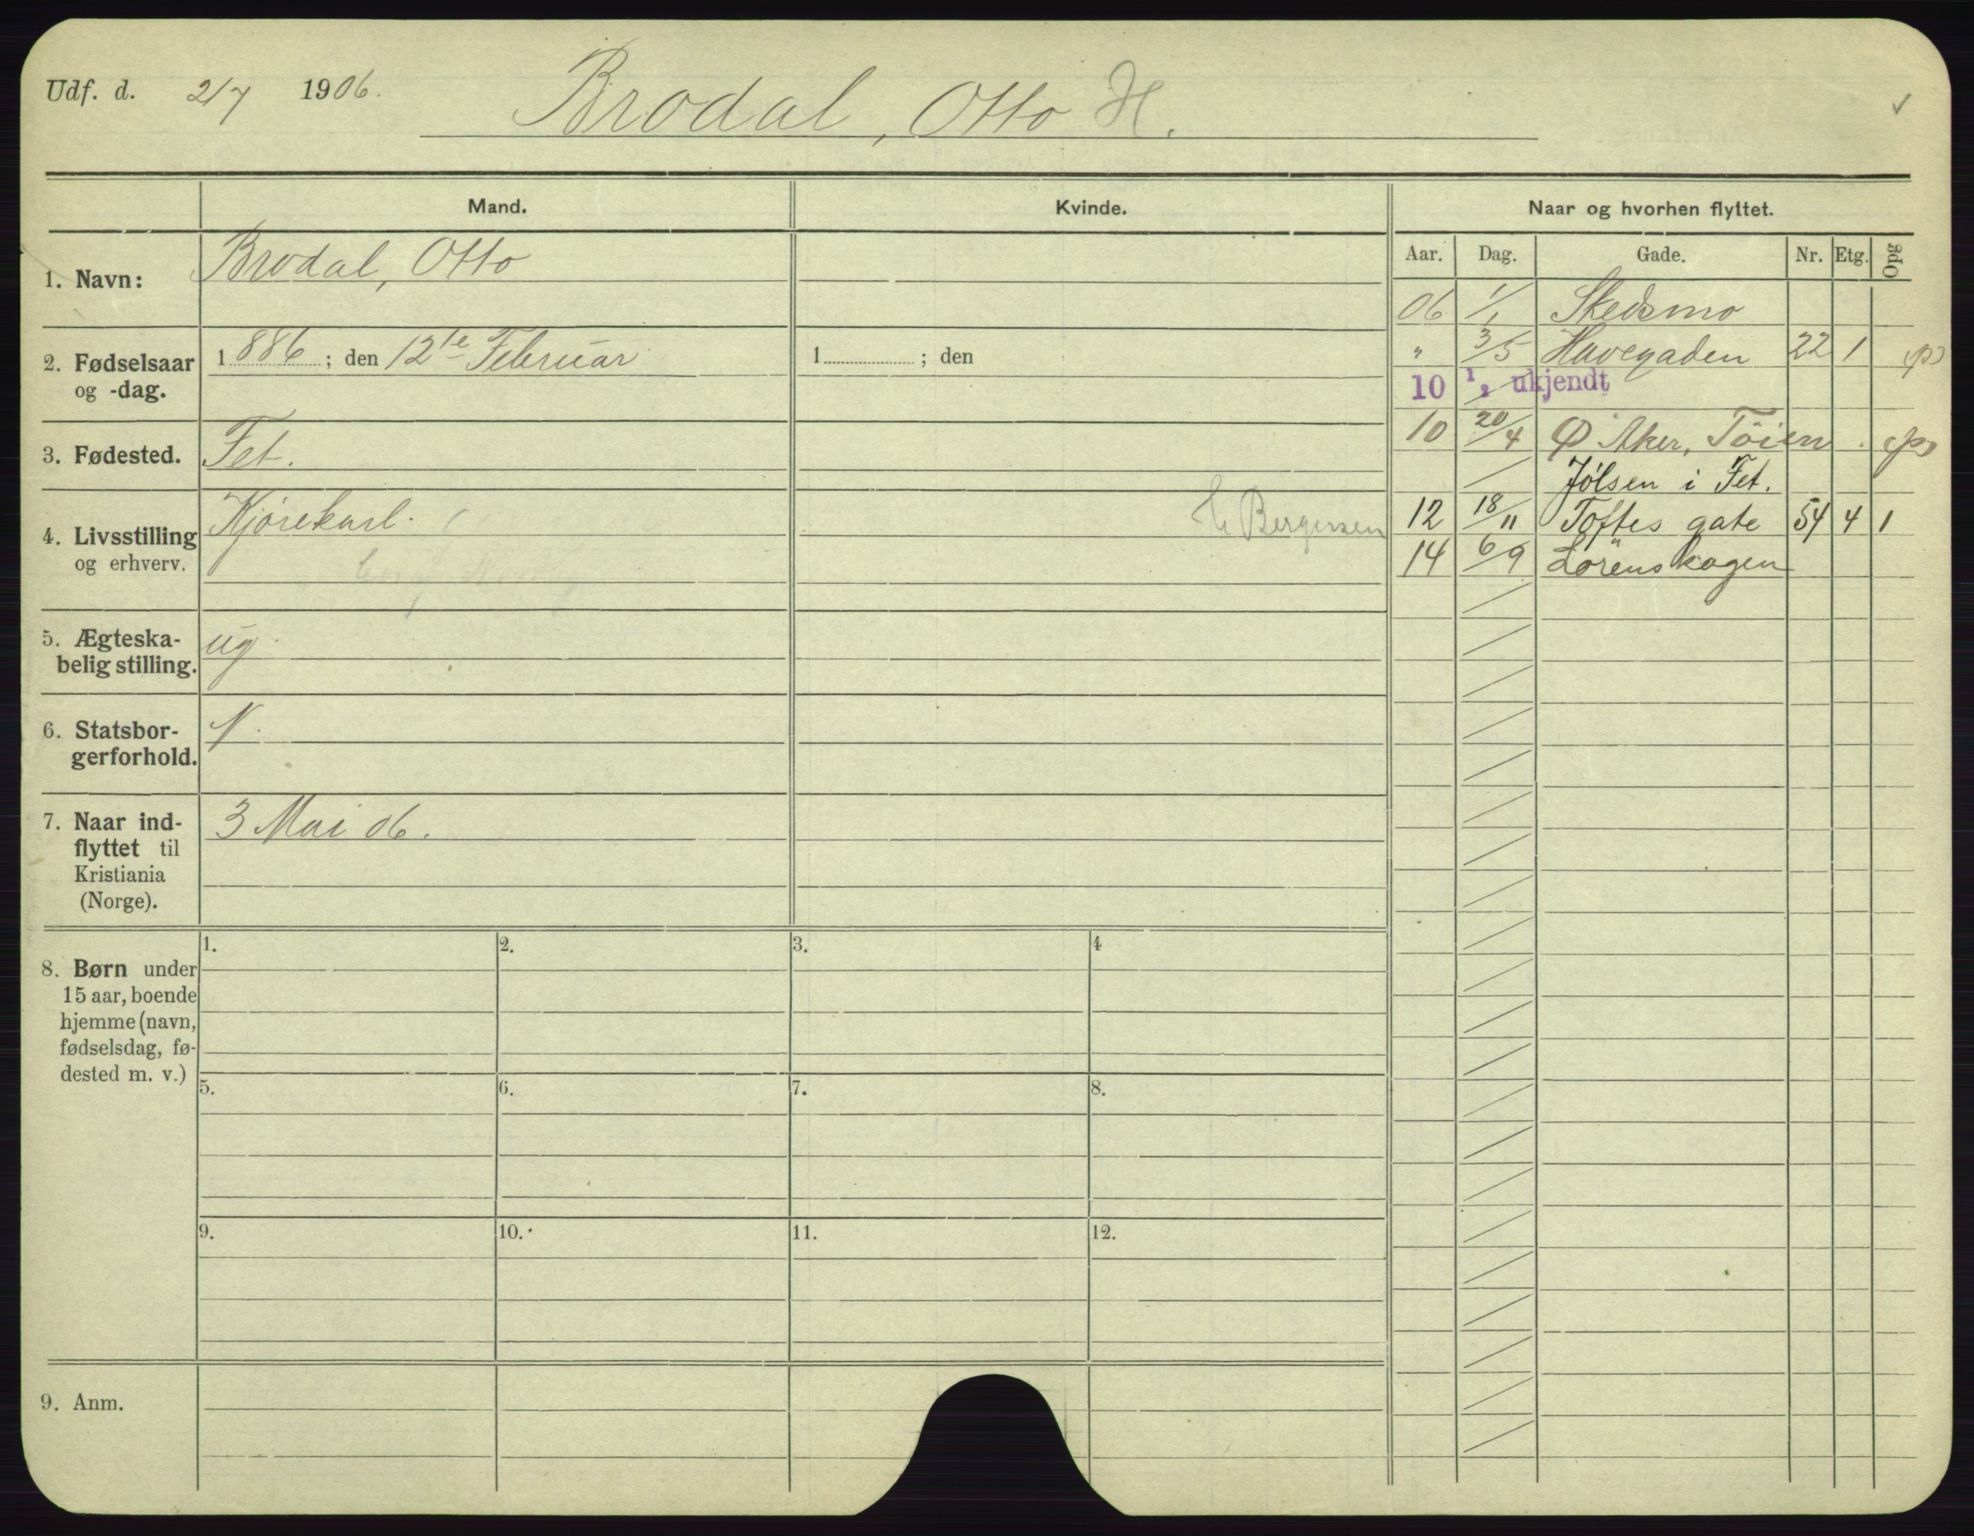 Udf. d. 2/7 1906.
Brodal, Otto H.
Mand.
Kvinde.
Naar og hvorhen flyttet.
Aar. Dag. Gade. Nr. Etg. Opg
1. Navn: Brodal, Otto
2. Fødselsaar og -dag. 1886; den 12te Februar
1 ; den
3. Fødested. Fet.
4. Livsstilling og erhverv. Kjørekarl.
Bergersen
5. Ægteska-
belig stilling. ug.
6. Statsbor-
gerforhold. N.
7. Naar ind-
flyttet til
Kristiania
(Norge).
3 Mai 06.
8. Børn under
15 aar, boende
hjemme (navn,
fødselsdag, fø-
dested m. v.)
1. 2. 3. 4
5. 6. 7. 8.
9. 10. 11. 12.
9. Anm.
06 1/1 Skedsmo
" 3/5 Havegaden 22 1 (p)
10 1/1 ukjendt
10 20/4 Ø Aker, Töien . (p)
Jølsen i Fet.
12 18/11 Toftes gate 54 4 1
14 6/9 Lörenskogen